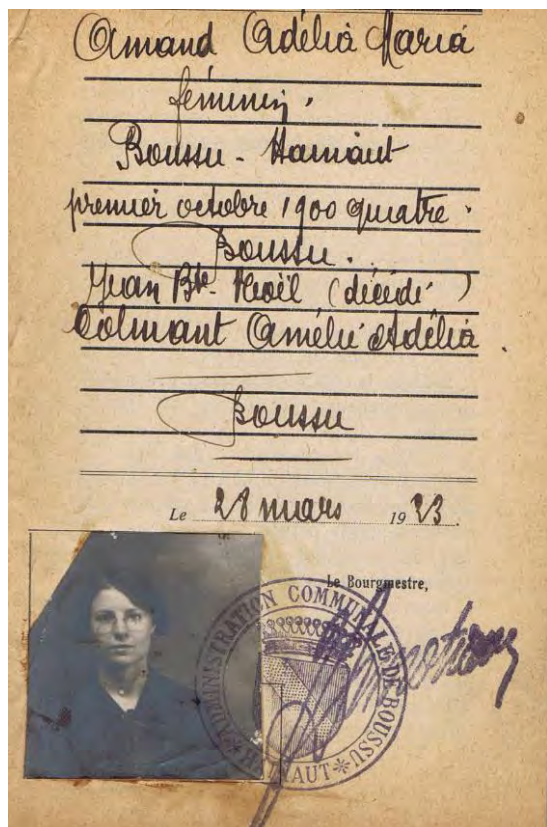 Armand Adélia Maria
féminin.
Boussu - Hainaut
premier octobre 1900 quatre.
Boussu.
Jean Bte- Noël (décédé)
Colmant Amélie Adélia
Boussu
Le 28 mars 1923.
Le Bourgmestre,
ADMINISTRATION COMMUNALE DE BOUSSU
HAINAUT